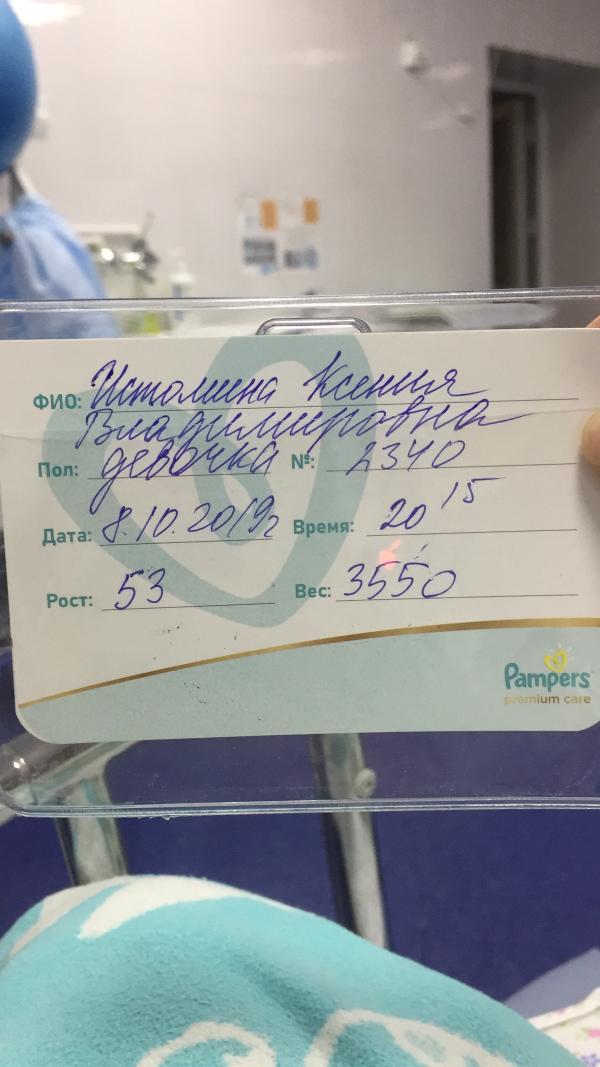 ФИО: Истомина Ксения
Владимировна
Пол: девочка №: 2340
Дата: 8.10.2019г Время: 20 15
Рост: 53 Вес: 3550
Pampers
premium care